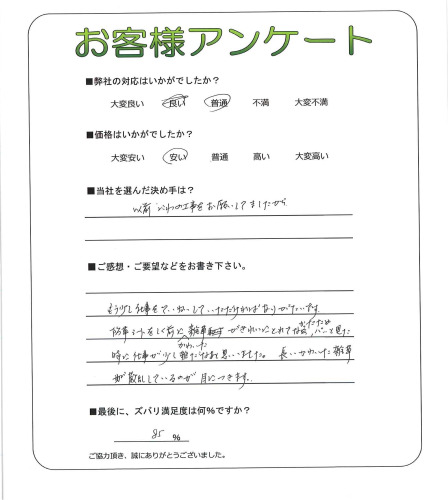 お客様アンケート
■弊社の対応はいかがでしたか？
大変良い 良い 普通 不満 大変不満
■価格はいかがでしたか？
大変安い 安い 普通 高い 大変高い
■当社を選んだ決め手は？
以前 の工事をお願いしてましたから
■ご感想・ご要望などをお書き下さい。
もう少し仕事をていねいしていただければありがたいです。
防草シートをしく前に雑草 がきれいにとれてな かったため パッと見た
かれいた
時に仕事が少し雑だなあと思いました。 長い 雑草
が散乱しているのが目につきます。
■最後に、ズバリ満足度は何％ですか？
85 ％
ご協力頂き、誠にありがとうございました。